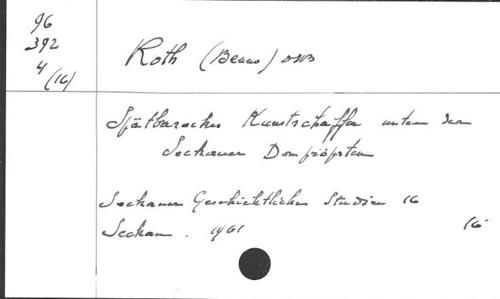 96
392
4
(16)
Roth (Benno) OSB
Spätbarockes Kunstschaffen unter den
Seckauer Dompröpsten
Seckauer Geschichtliche Studien 16
Seckau. 1961
16